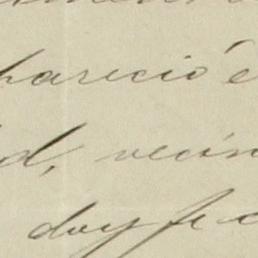 pareció é
d, vecin
doy fe c